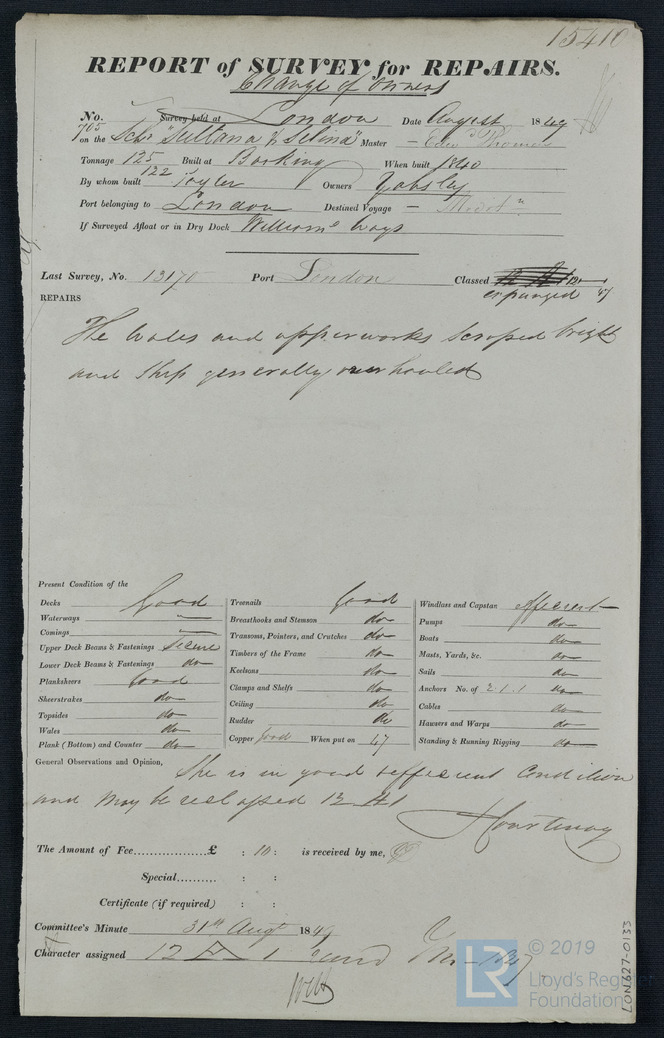 15410
REPORT of SURVEY for REPAIRS.
Change of Owners
No. 705 Survey held at London Date August 1849
on the Schr "Sultana & Selina" Master - Edwd Thomas
Tonnage 125 122 Built at Bocking When built 1840
By whom built Taylor Owners Yabsley
Port belonging to London Destined Voyage -
If Surveyed Afloat or in Dry Dock Williams Ways
Last Survey, No. 13170 Port London Classed 12 A 1
expunged 47
REPAIRS
The Wales and upperworks scraped bright
and Ship generally overhauled
Present Condition of the
Decks Good
Waterways —
Comings —
Upper Deck Beams & Fastenings Secure
Lower Deck Beams & Fastenings do
Planksheers Good
Sheerstrakes do
Topsides do
Wales do
Plank (Bottom) and Counter do
Treenails Good
Breasthooks and Stemson do
Transoms, Pointers, and Crutches do
Timbers of the Frame do
Keelsons do
Clamps and Shelfs do
Ceiling do
Rudder do
Copper Good When put on 47
Windlass and Capstan efficient
Pumps do
Boats do
Masts, Yards, &c. do
Sails do
Anchors No. of 2.1.1 do
Cables do
Hawsers and Warps do
Standing & Running Rigging do
General Observations and Opinion, She is in good & efficient Condition
and may be reclassed 12 A 1
Courtenay
The Amount of Fee...............£ : 10 : is received by me,
Special.......... : :
Certificate (if required) : :
Committee's Minute 31st Augt 1849
Character assigned 12 A 1
LR © 2019
Lloyd's Register
Foundation
LON627-0133